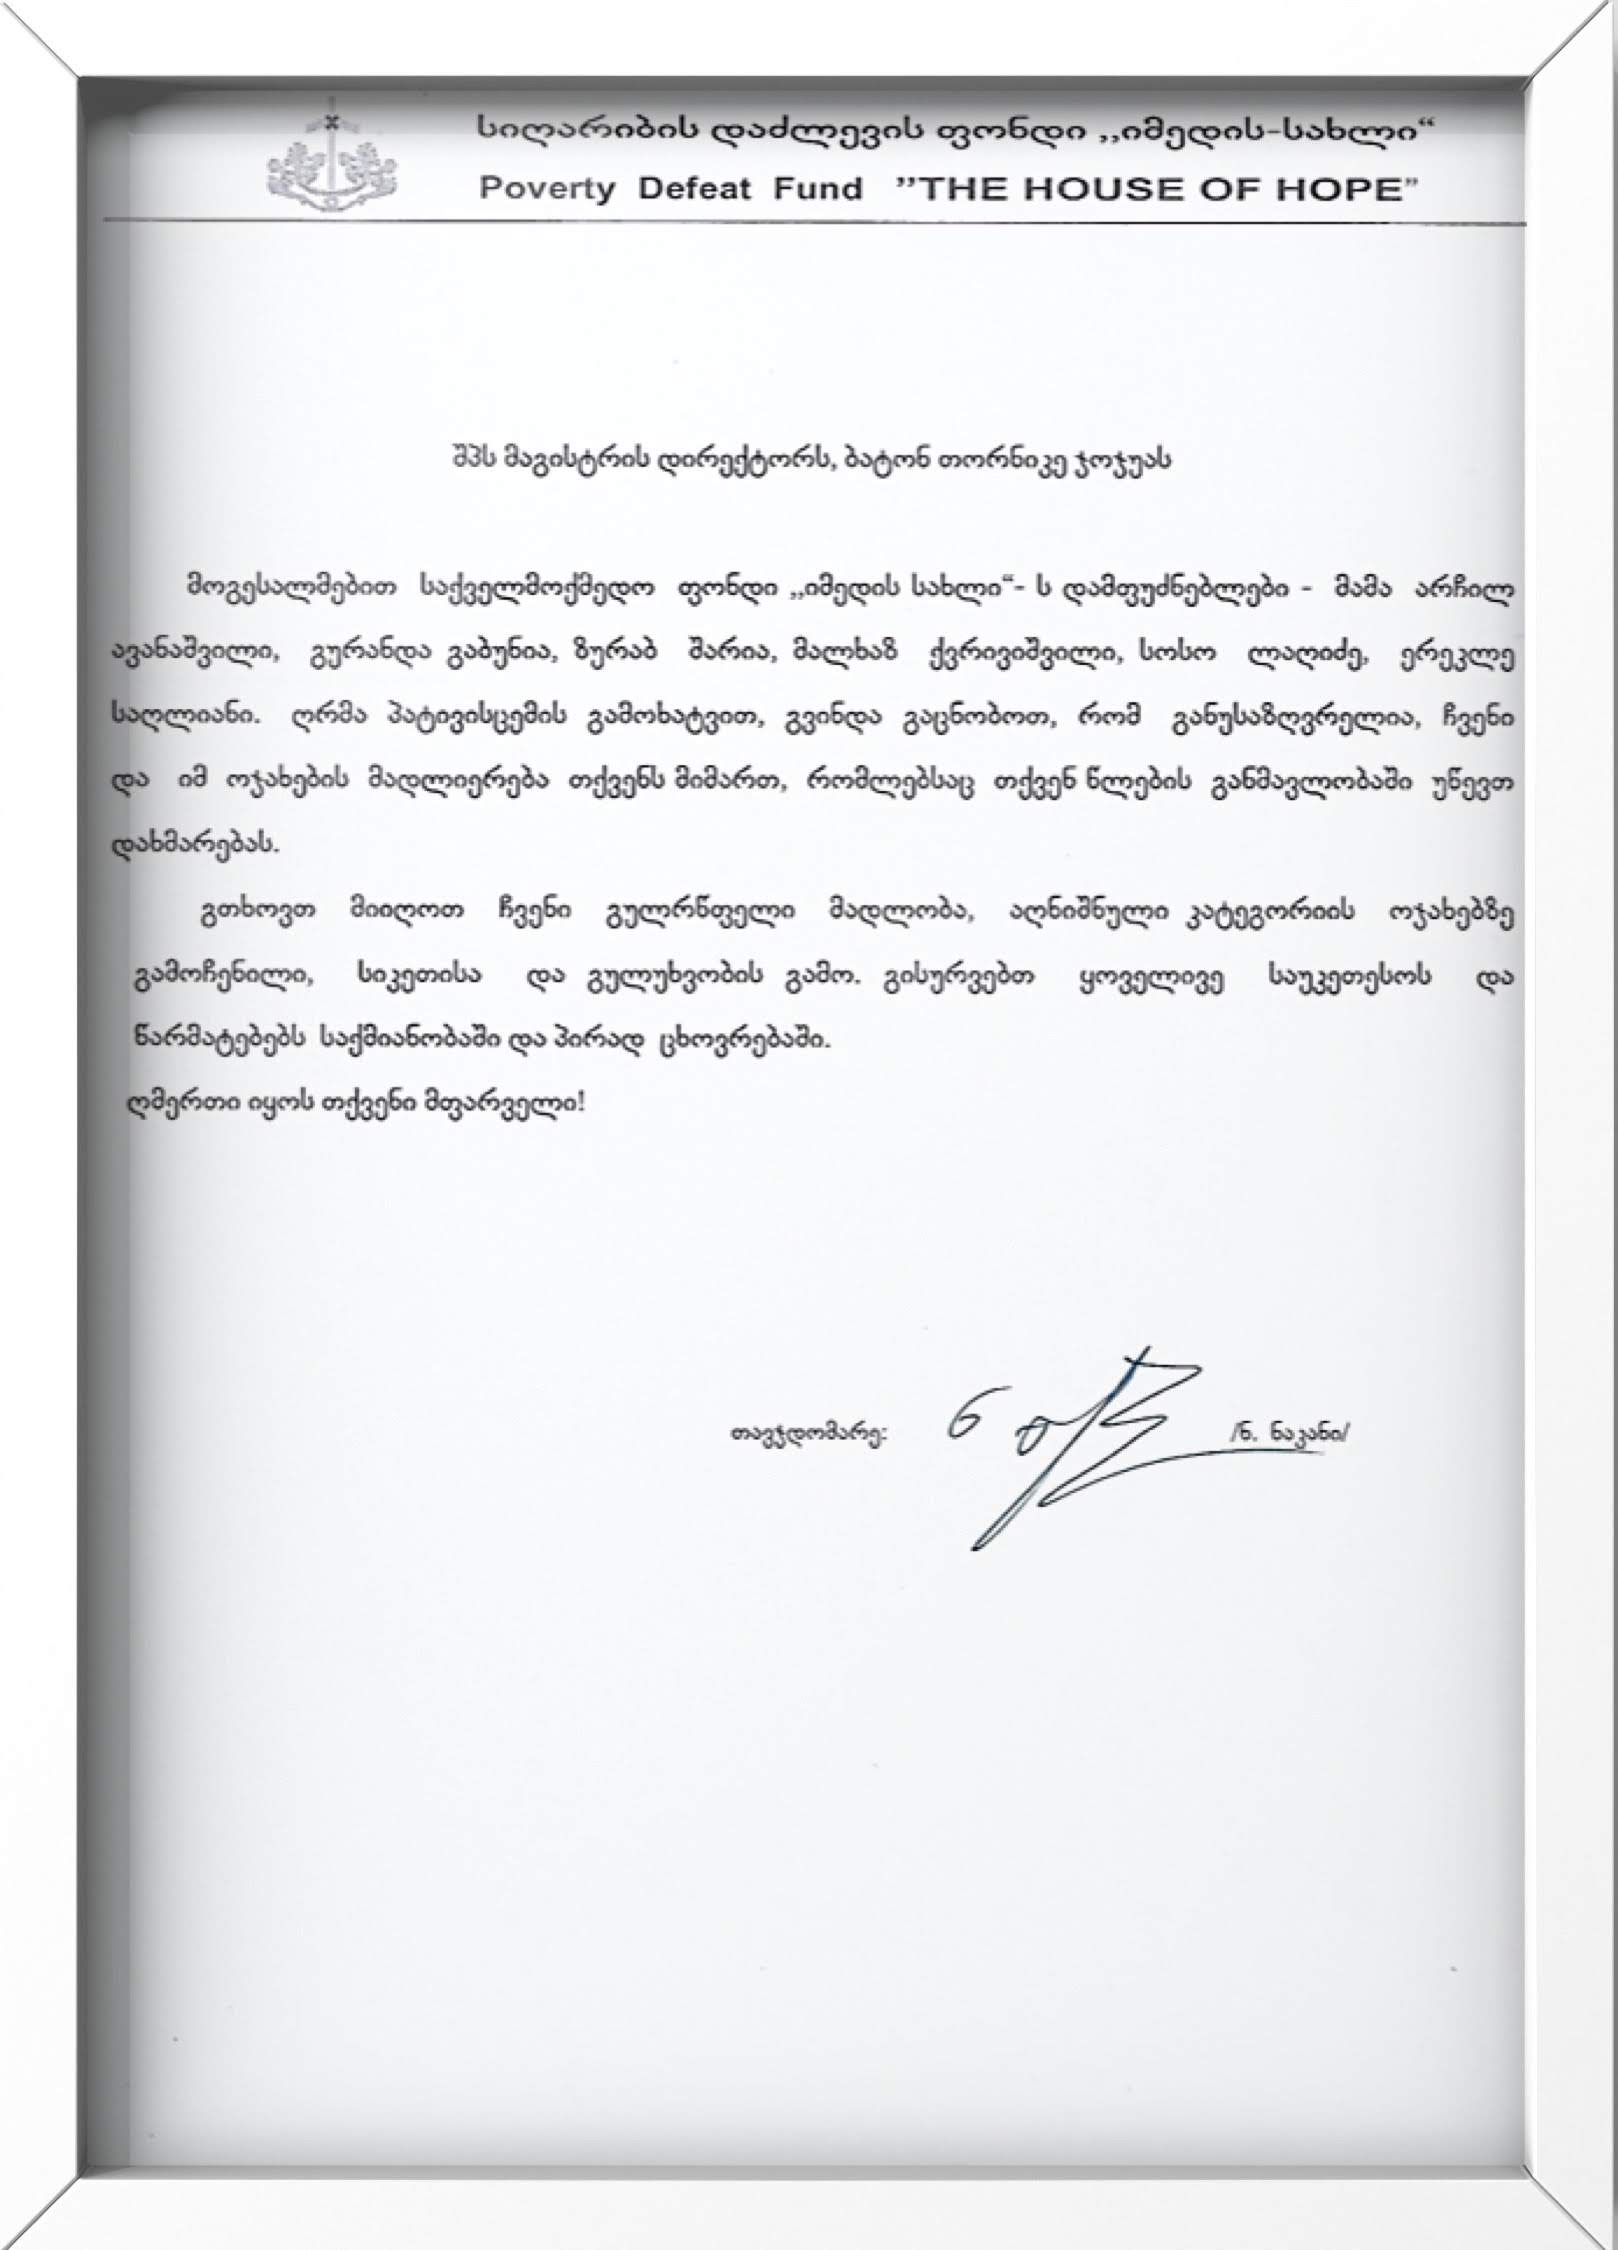 სიღარიბის დაძლევის ფონდი ,,იმედის-სახლი“
Poverty Defeat Fund ”THE HOUSE OF HOPE”
შპს მაგისტრის დირექტორს, ბატონ თორნიკე ჯოჯუას
მოგესალმებით საქველმოქმედო ფონდი ,,იმედის სახლი“- ს დამფუძნებლები - მამა არჩილ
ავანაშვილი, გურანდა გაბუნია, ზურაბ შარია, მალხაზ ქვრივიშვილი, სოსო ლაღიძე, ერეკლე
საღლიანი. ღრმა პატივისცემის გამოხატვით, გვინდა გაცნობოთ, რომ განუსაზღვრელია, ჩვენი
და იმ ოჯახების მადლიერება თქვენს მიმართ, რომლებსაც თქვენ წლების განმავლობაში უწევთ
დახმარებას.
გთხოვთ მიიღოთ ჩვენი გულრწფელი მადლობა, აღნიშნული კატეგორიის ოჯახებზე
გამოჩენილი, სიკეთისა და გულუხვობის გამო. გისურვებთ ყოველივე საუკეთესოს და
წარმატებებს საქმიანობაში და პირად ცხოვრებაში.
ღმერთი იყოს თქვენი მფარველი!
თავჯდომარე: /ნ. ნაკანი/